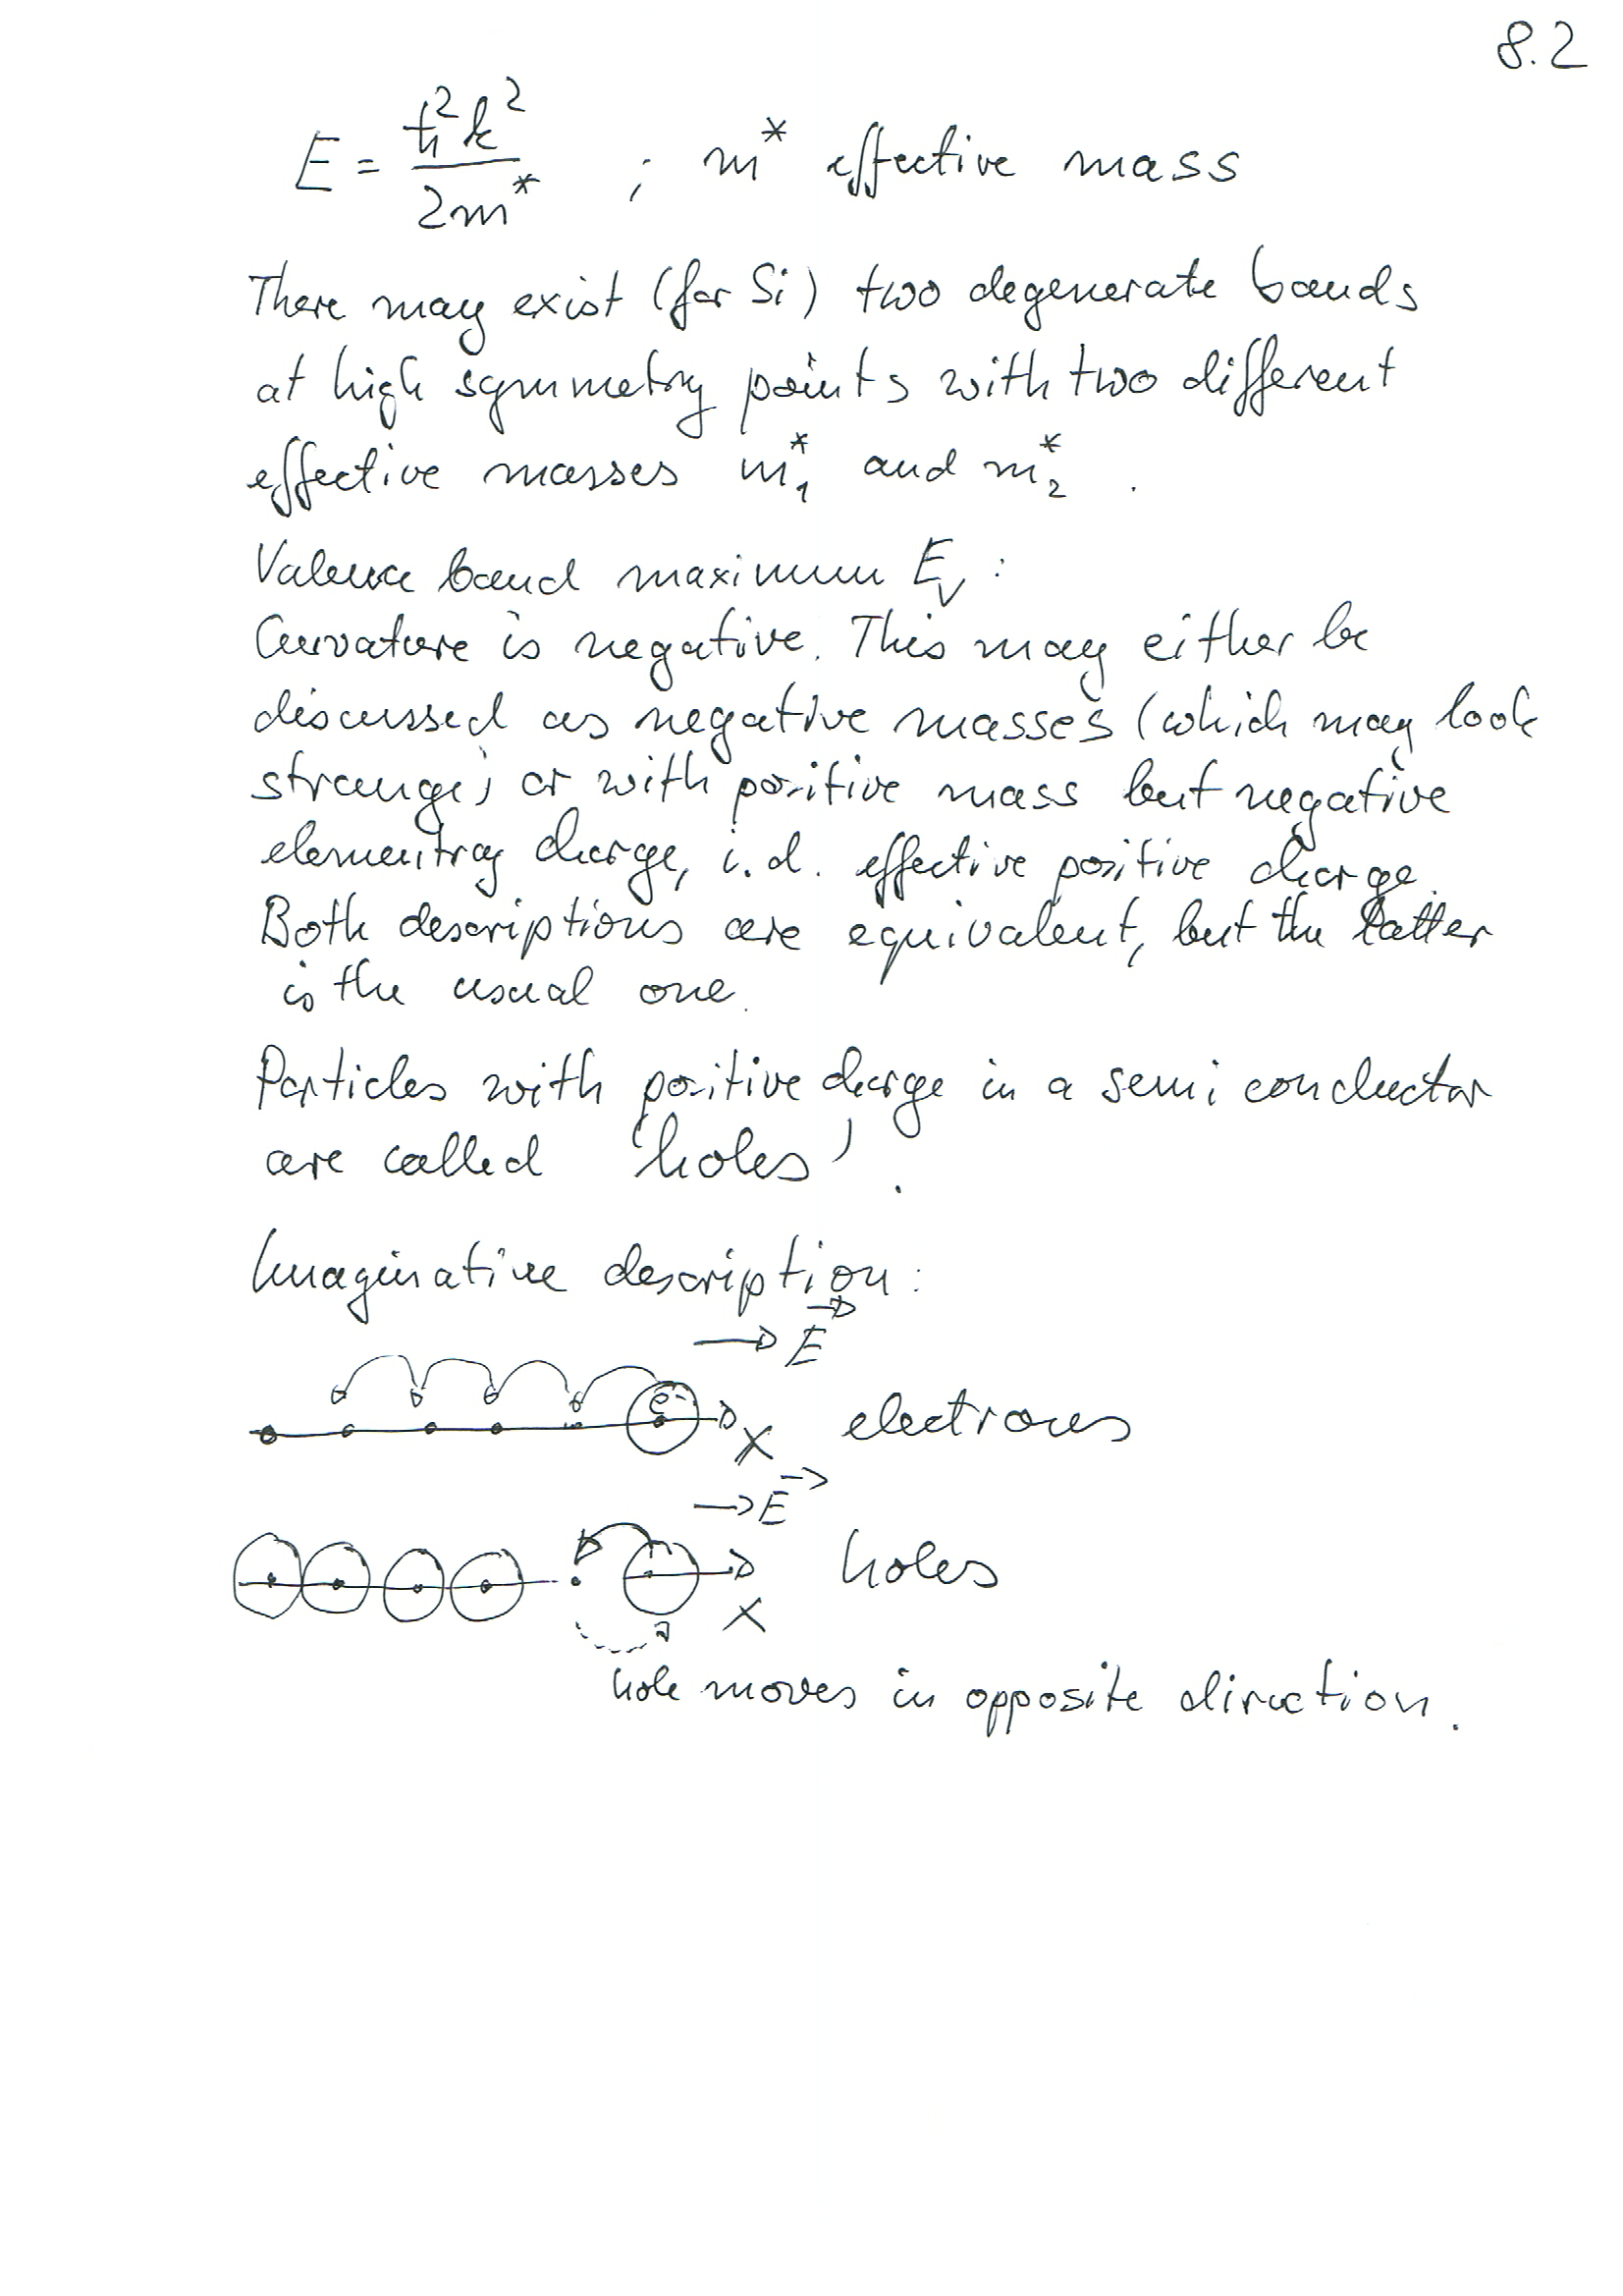 8.2
E = ħ²k² / 2m* ; m* effective mass
There may exist (for Si) two degenerate bands
at high symmetry points with two different
effective masses m₁* and m₂* .
Valence band maximum E_V :
Curvature is negative. This may either be
discussed as negative masses (which may look
strange) or with positive mass but negative
elementray charge, i.d. effective positive charge.
Both descriptions are equivalent, but the latter
is the usual one.
Particles with positive charge in a semiconductor
are called 'holes'.
Imaginative description:
→ E⃗
e⁻
x electrons
→ E⃗
holes
x
hole moves in opposite direction.